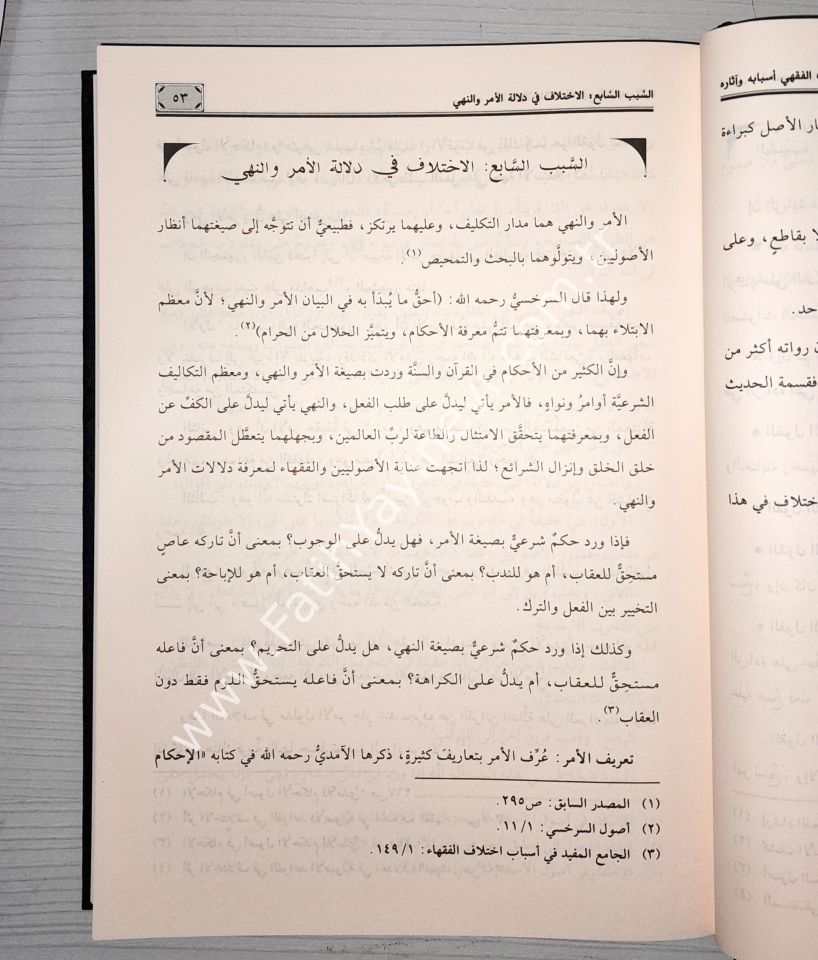 السَّبب السَّابع: الاختلاف في دلالة الأمر والنهي
٥٣
السَّبب السَّابع: الاختلاف في دلالة الأمر والنهي
الأمر والنهي هما مدار التكليف، وعليهما يرتكز، فطبيعيٌّ أن تتوجَّه إلى صيغتهما أنظار
الأصوليين، ويتولَّوهما بالبحث والتمحيص(١).
ولهذا قال السرخسيُّ رحمه الله: (أحقُّ ما يُبدَأ به في البيان الأمر والنهي؛ لأنَّ معظم
الابتلاء بهما، وبمعرفتهما تتمُّ معرفة الأحكام، ويتميَّز الحلال من الحرام)(٢).
وإنَّ الكثير من الأحكام في القرآن والسنَّة وردت بصيغة الأمر والنهي، ومعظم التكاليف
الشرعيَّة أوامرُ ونواهٍ، فالأمر يأتي ليدلَّ على طلب الفعل، والنهي يأتي ليدلَّ على الكفِّ عن
الفعل، وبمعرفتهما يتحقَّق الامتثال والطاعة لربِّ العالمين، وبجهلهما يتعطَّل المقصود من
خلق الخلق وإنزال الشرائع؛ لذا اتجهت عناية الأصوليين والفقهاء لمعرفة دلالات الأمر
والنهي.
فإذا ورد حكمٌ شرعيٌّ بصيغة الأمر، فهل يدلُّ على الوجوب؟ بمعنى أنَّ تاركه عاصٍ
مستحِقٌّ للعقاب، أم هو للندب؟ بمعنى أنَّ تاركه لا يستحقُّ العقاب، أم هو للإباحة؟ بمعنى
التخيير بين الفعل والترك.
وكذلك إذا ورد حكمٌ شرعيٌّ بصيغة النهي، هل يدلُّ على التحريم؟ بمعنى أنَّ فاعله
مستحِقٌّ للعقاب، أم يدلُّ على الكراهة؟ بمعنى أنَّ فاعله يستحقُّ اللوم فقط دون
العقاب(٣).
تعريف الأمر: عُرِّف الأمر بتعاريفَ كثيرةٍ، ذكرها الآمديُّ رحمه الله في كتابه «الإحكام
(١) المصدر السابق: ص٢٩٥.
(٢) أصول السرخسي: ١/١١.
(٣) الجامع المفيد في أسباب اختلاف الفقهاء: ١/١٤٩.
الفقهي أسبابه وآثاره
الأصل كبراءة
بقاطعٍ، وعلى
رواته أكثر من
فقسمة الحديث
في هذا
www.FatihYayinevi.com.tr